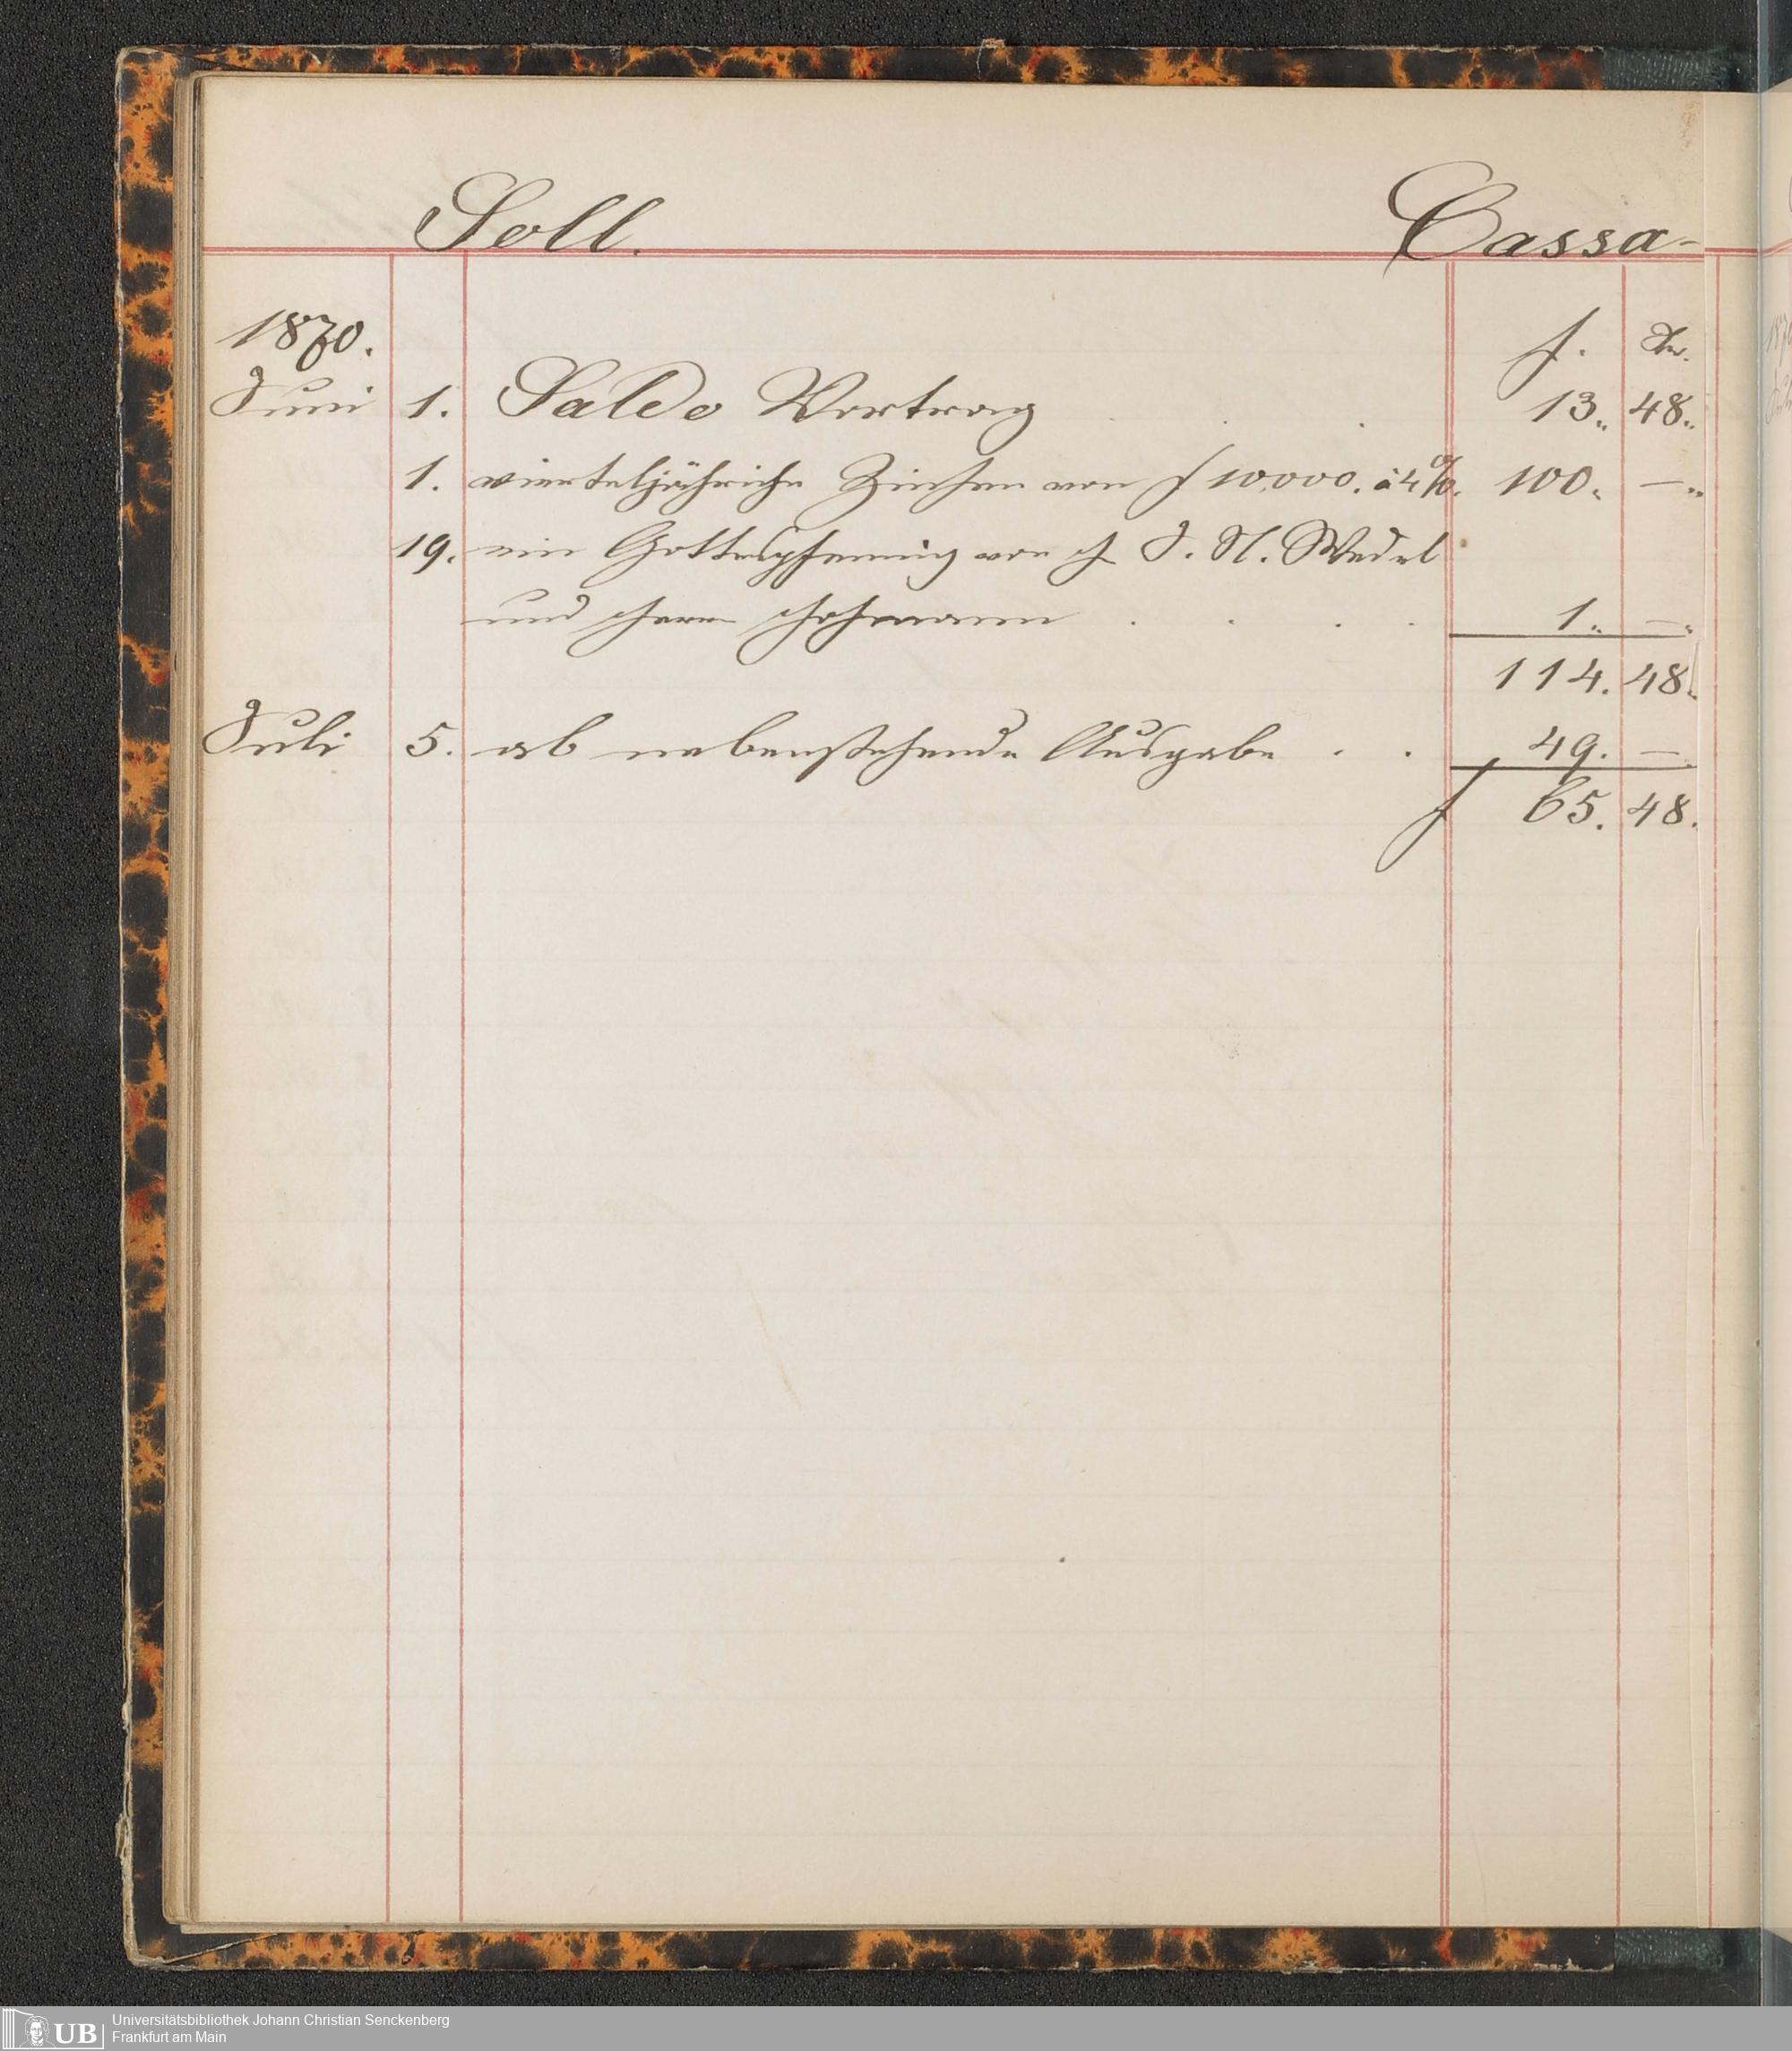 Soll. Cassa-
1870. f. Kr.
Juni 1. Saldo Vortrag . . 13.. 48..
1. vierteljährige Zinsen von f 10,000. à 4%. 100. —..
19. ein Gottespfennig von H J. N. Wedel
und Herrn Hohmann . . . . 1.. —..
114. 48.
Juli 5. ab nebenstehende Ausgabe . . 49. —.
f 65. 48.
UB Universitätsbibliothek Johann Christian Senckenberg
Frankfurt am Main